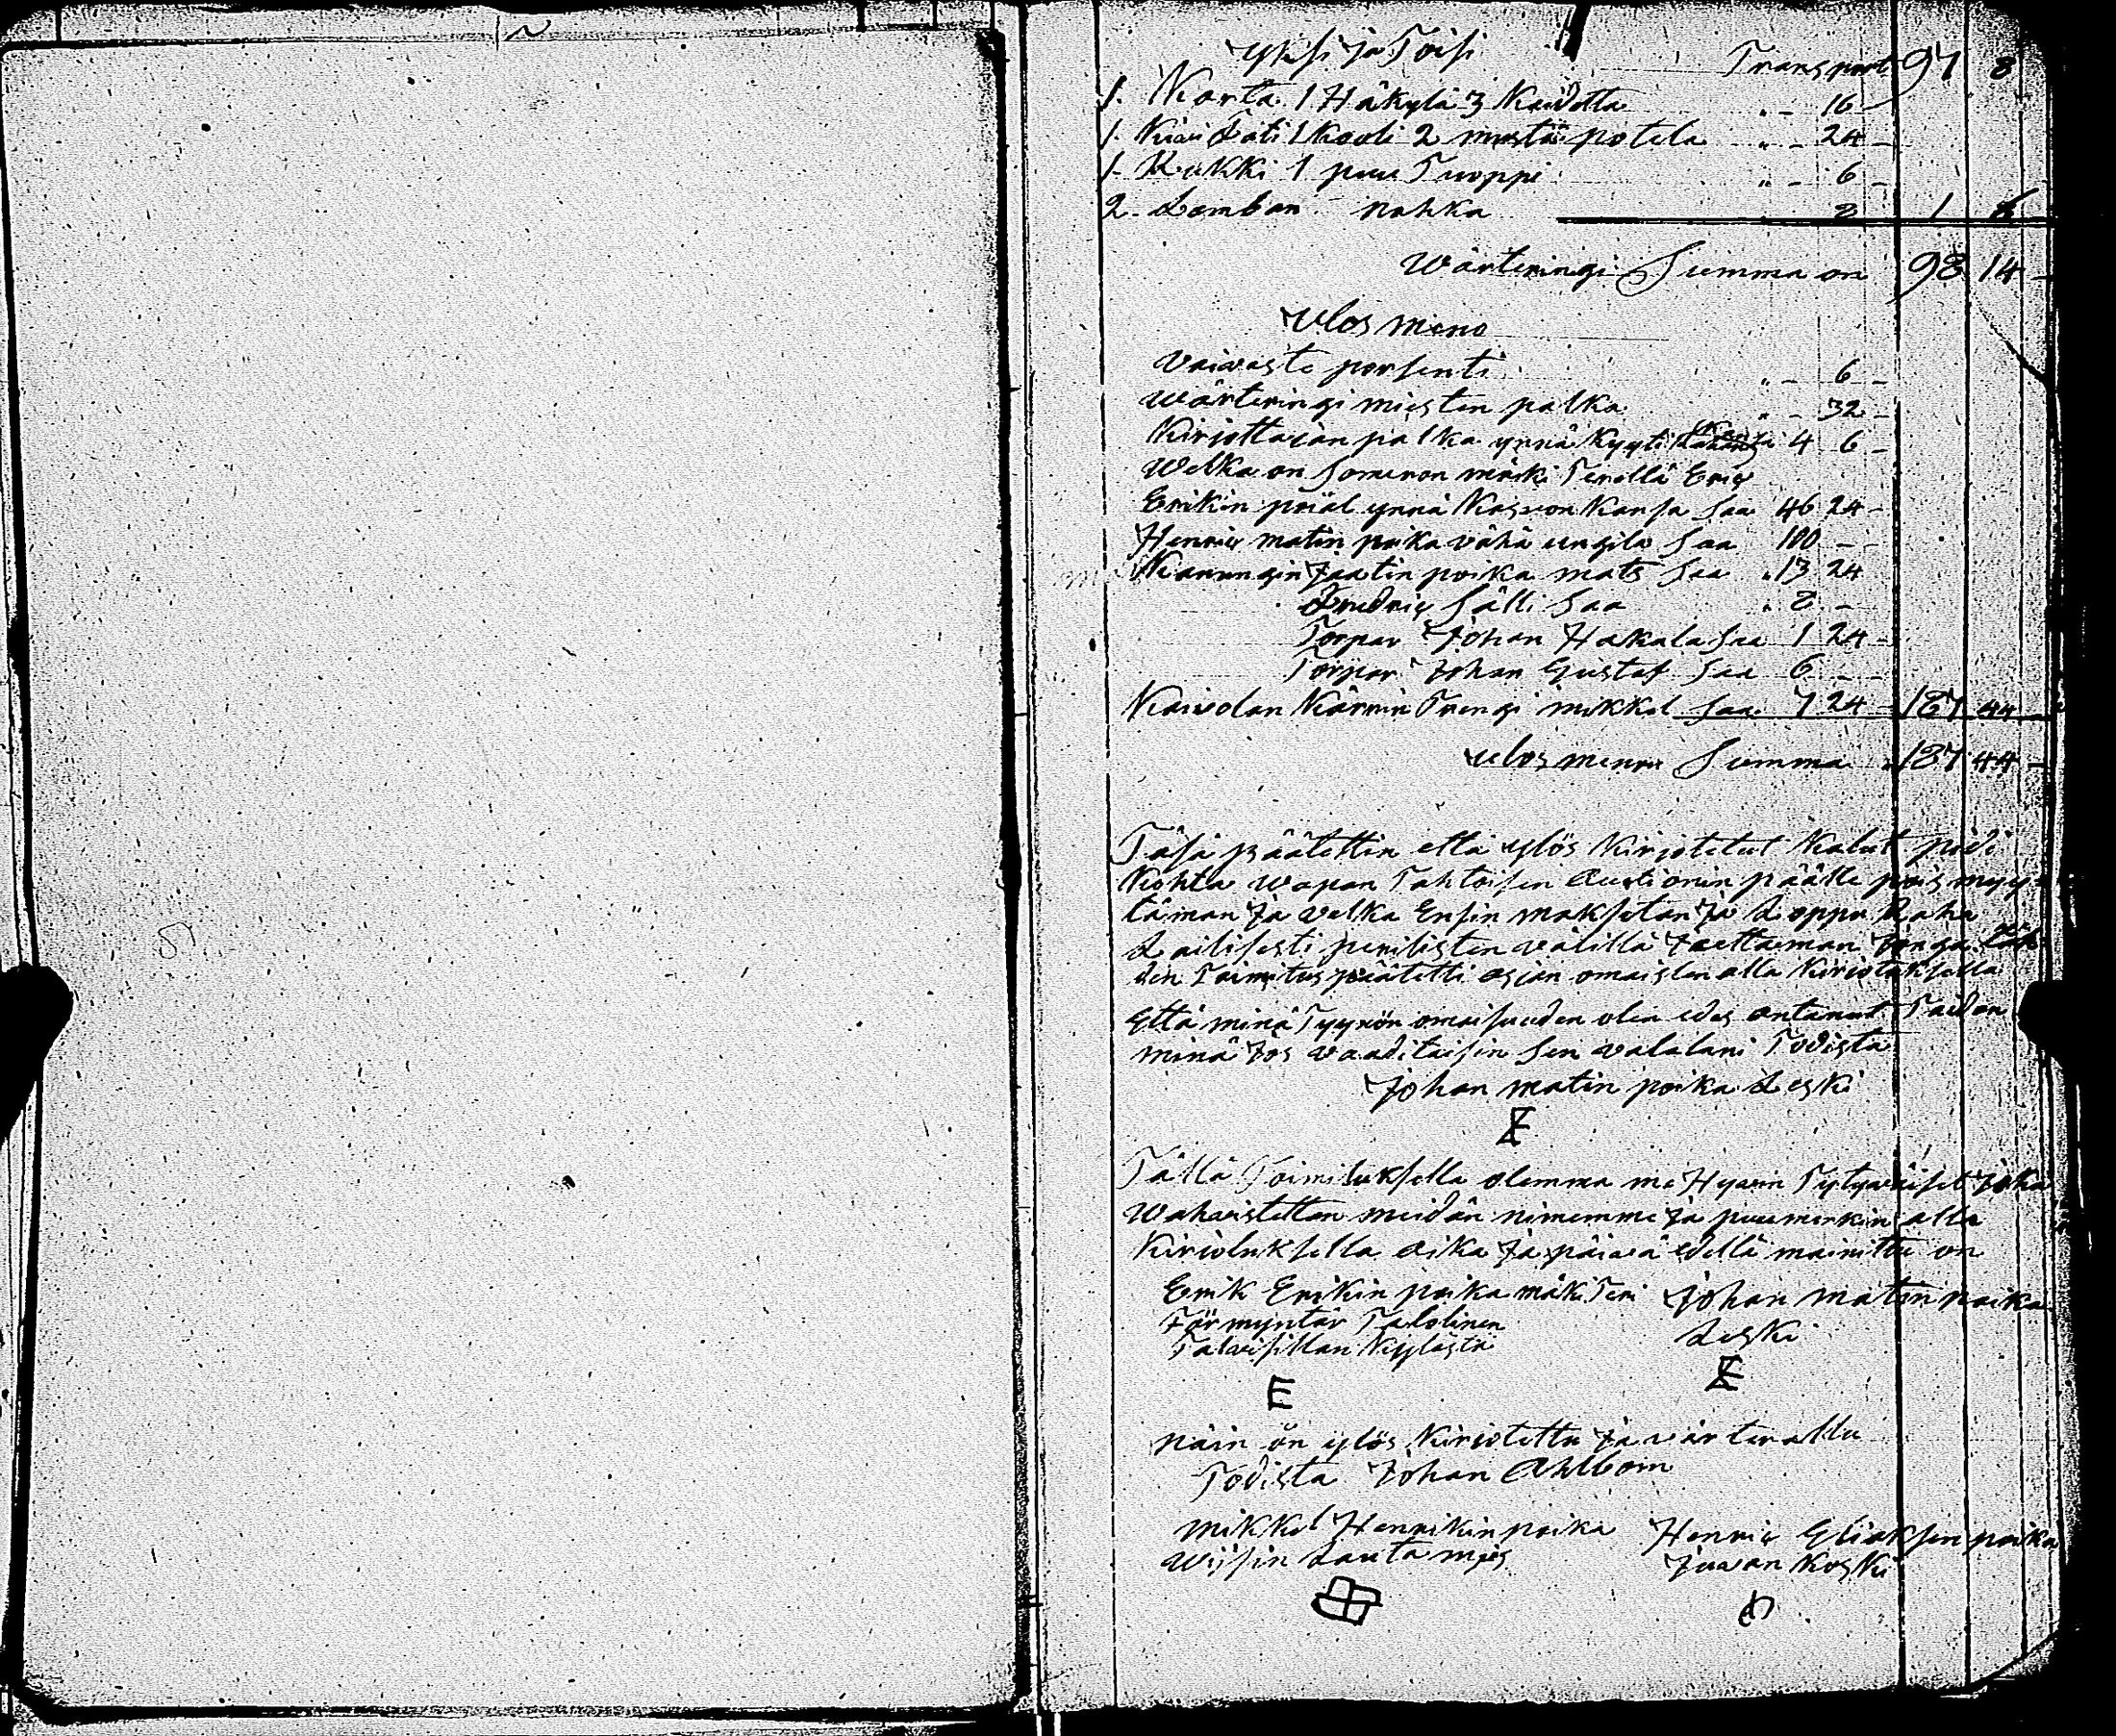 Yksi ja Toisi
Transport 97 8
1. Karta 1 Häkylä 3 Kaidetta " - 16
1. Kivi Fati 1 Kooli 2 musta potela " - 24 -
1- Rukki 1 puu Tuoppi " - 6 -
2- Lamban nahka 2 1
Wärteringi Summa on 98 14 -
Ulos meno
Vaivaste porsenti " - 6 -
Wärteringi miesten palka " - 32 -
Kirjottajan palka ynnä kyyti 4 6 -
Welka on Someron mäki Terellä Eric
Erikin pojal ynnä Kasvon Kansa saa 46 24 -
Henric matin poika vähä ungila saa 100 - -
Jaatin poika mats saa " 13 24
Fredric Sälli saa " 8 -
Torpar Johan Hakala saa 1 24 -
Torpar Johan Gustaf saa 6 - -
Kaivolan Trengi mikkel saa 7 24 - 187 44
ulos menon Summa " 187 44 -
Täsä päätettin että ylös Kirjotetut Kalut pidi
Kohta wapan Tahtoisen Auctionin päälle pois myy
tämän ja velka Ensin maksetan ja Loppu Raha
Lailisesti perilisten välillä Jaettaman Jonga
den Toimitus päätetti asjan omaisten alla Kirjotuksella
Että minä Tyynön omaisuuden olen edes antanut Taidan
minä Jos vaaditaisin sen valalani Todista
Johan matin poika Leski
Tällä Toimituksella olemma me Hyvin Tytyväiset Joka
Wahvistettan meidän nimemme ja puumerkin alla
Kirjotuksella aika ja päivä edellä mainittu on
Erik Erikin poika mäki Teri Johan matin poika
Förmyntär Talolinen Leski
Talvisillan Kylästä
E
näin on ylös Kirjotettu ja värterattu
Todista Johan Ahlbom
Mikkel Henrikin poika Henric Eliaksen poika
Wijsin Lauta mies Juvan Koski